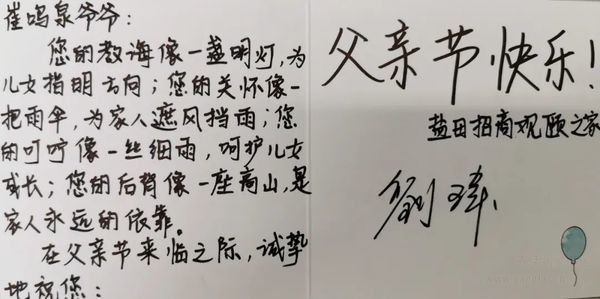 崔鸣泉爷爷：
您的教诲像一盏明灯，为
儿女指明方向；您的关怀像一
把雨伞，为家人遮风挡雨；您
的叮咛像一丝细雨，呵护儿女
成长；您的后背像一座高山，是
家人永远的依靠。
在父亲节来临之际，诚挚
地祝您：
父亲节快乐！
盐田招商观颐之家
刘玮